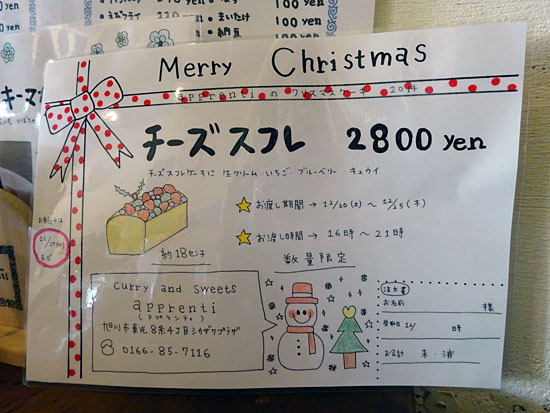 100 yen
まいたけ 100 yen
納豆 100 yen
キーマ
Merry Christmas
apprentiのクリスマスケーキ 2014
チーズスフレ 2800 yen
チーズスフレケーキに 生クリーム・いちご・ブルーベリー・キュウイ
お渡し期間 → 12/20(土) 〜 12/25(木)
お渡し時間 → 16時〜21時
約18センチ
数量限定
12/17(水)
まで
curry and sweets
apprenti
(アプランティ)
旭川市東光8条4丁目シカザワプラザ
0166-85-7116
注文書
お名前 様
受取日 12/ 時
お会計 未・済